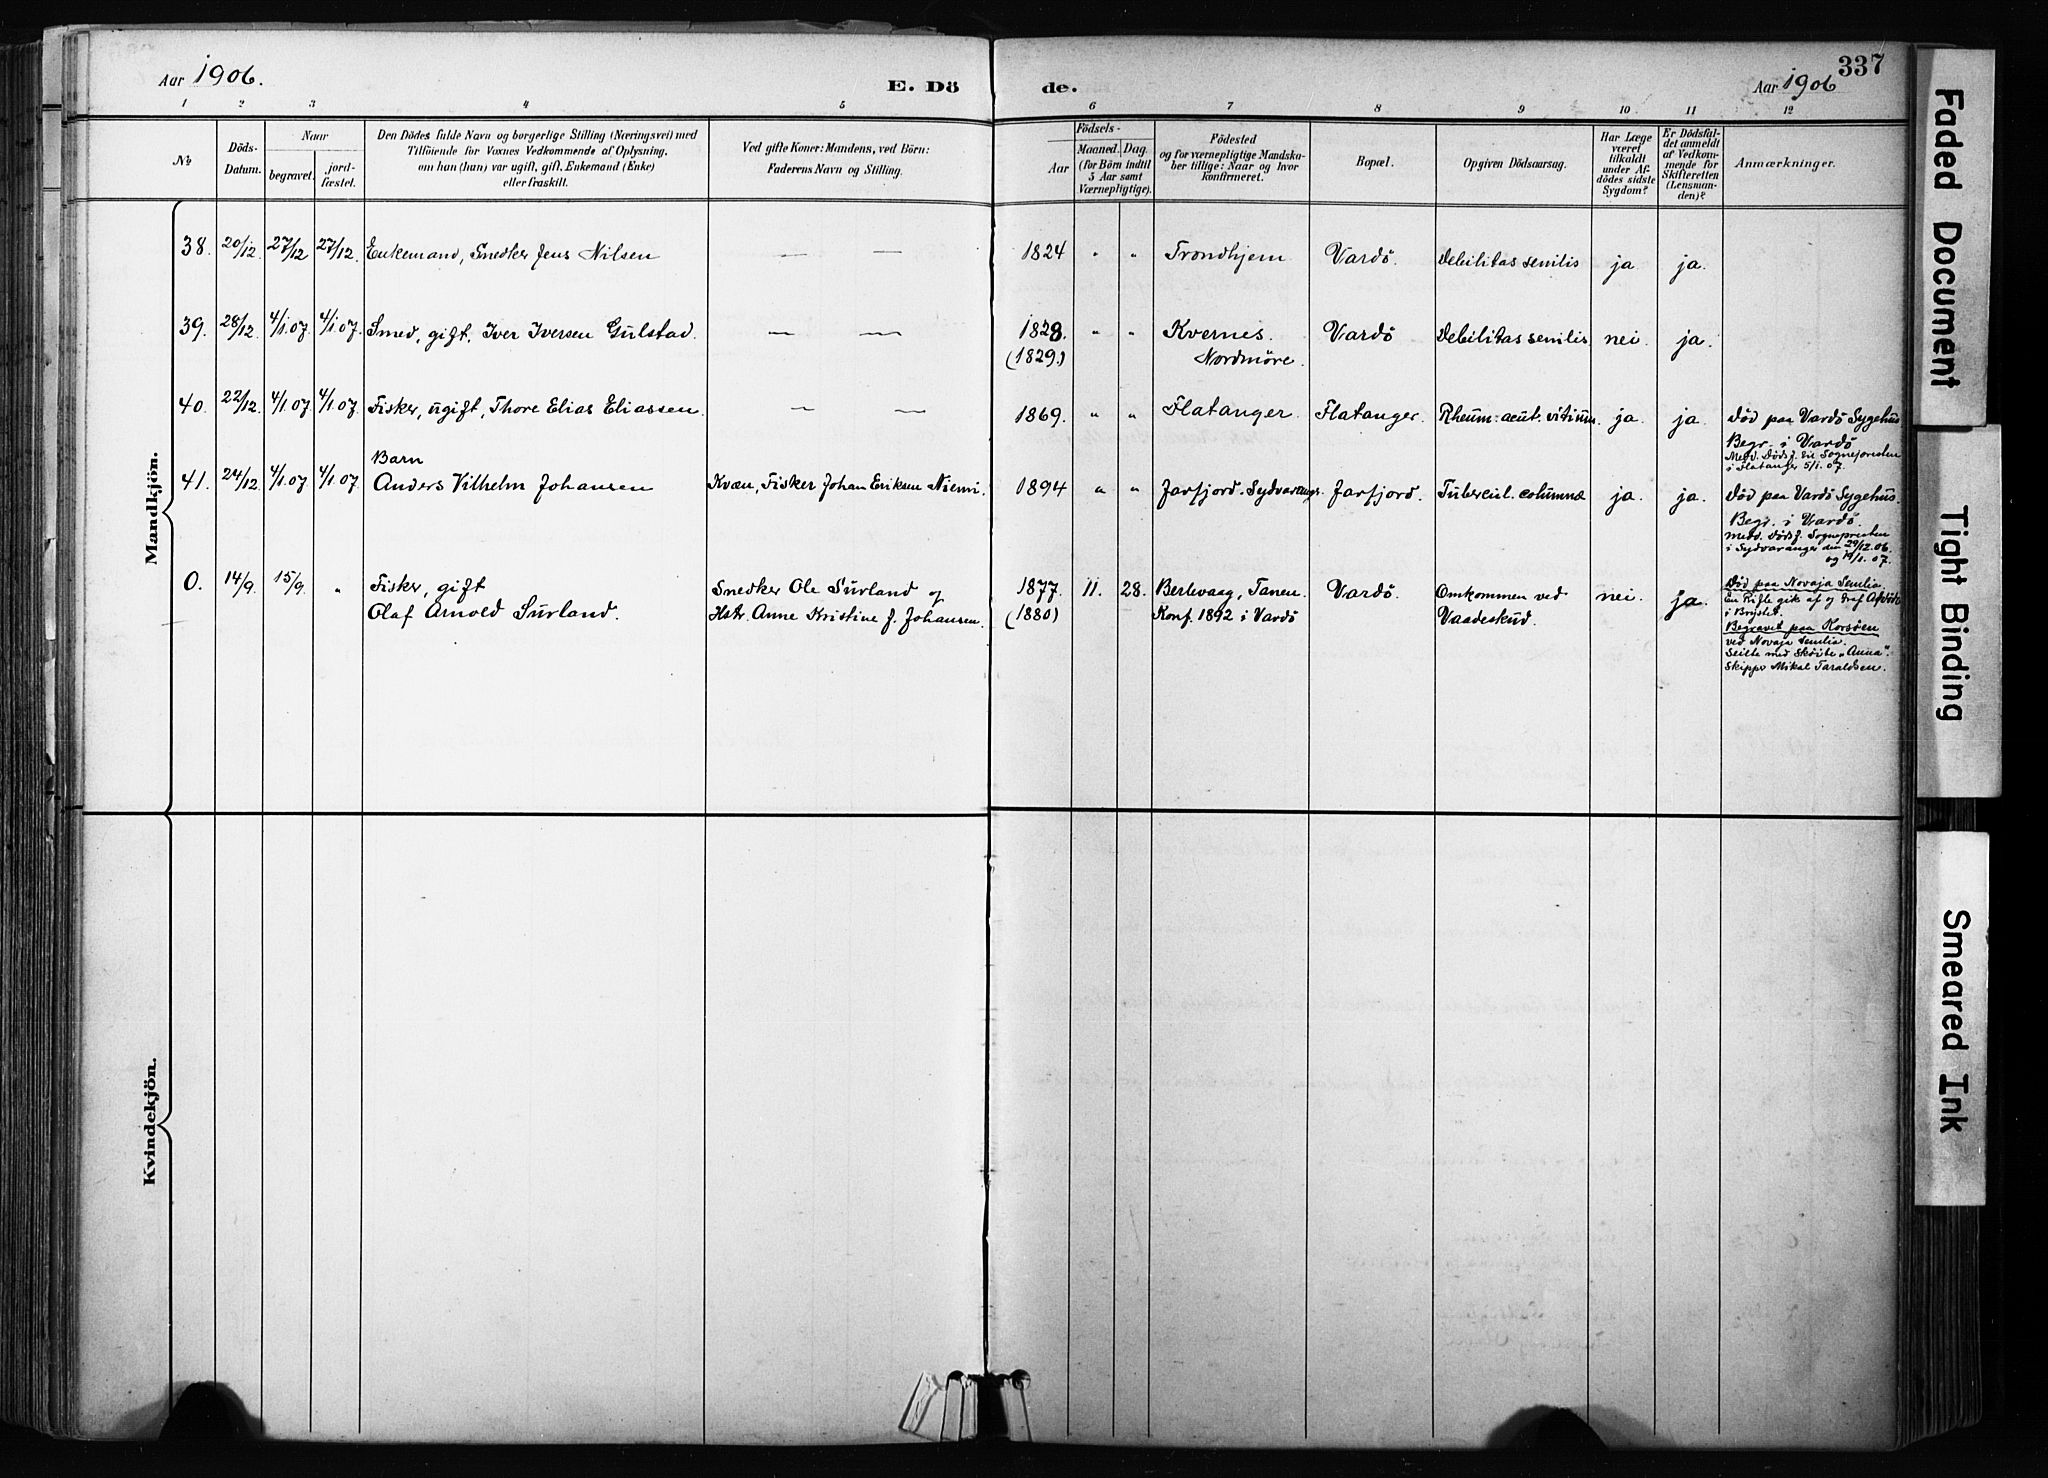 Aar 1906.
E. Dö
de.
Aar 1906
337
1 2 3 4 5 6 7 8 9 10 11 12
No
Döds-
Datum.
Naar
begravet.
jord-
fæstet.
Den Dödes fulde Navn og borgerlige Stilling (Næringsvei) med
Tilföiende for Voxnes Vedkommende af Oplysning,
om han (hun) var ugift, gift, Enkemand (Enke)
eller fraskilt.
Ved gifte Koner: Mandens, ved Börn:
Faderens Navn og Stilling.
Födsels-
Aar
Maaned. Dag.
(for Börn indtil
5 Aar samt
Værnepligtige).
Födested
og for værnepligtige Mandska-
ber tillige: Naar og hvor
konfirmeret.
Bopæl.
Opgiven Dödsaarsag.
Har Læge
været
tilkaldt
under Af-
dödes sidste
Sygdom?
Er Dödsfal-
det anmeldt
af Vedkom-
mende for
Skifteretten
(Lensman-
den)?
Anmærkninger.
Mandkjön.
38. 20/12. 27/12 27/12. Enkemand, Snedker Jens Nilsen — — 1824 " " Trondhjem Vardö. Debilitas senilis ja ja.
39. 28/12. 4/1.07. 4/1.07. Smed, gift, Iver Iversen Gulstad. — — 1828. " " Kvernes. Vardö Debilitas senilis. nei. ja.
(1829.) Nordmöre.
40. 22/12. 4/1.07. 4/1.07. Fisker, ugift, Thore Elias Eliassen. — — 1869. " " Flatanger. Flatanger. Rheum. acut. vitium. ja. ja. Död paa Vardö Sygehus.
Begr. i Vardö
Medd. Dödsf. til Sognepresten
i Flatanger 5/1.07.
Barn
41. 24/12. 4/1.07 4/1.07. Anders Vilhelm Johansen Kvæn, Fisker Johan Eriksen Niemi. 1894 " " Jarfjord. Sydvarang. Jarfjord. Tubercul. columnæ ja. ja. Död paa Vardö Sygehus.
Begr. i Vardö.
Medd. Dödsf. Sognepresten
i Sydvaranger den 29/12.06.
0. 14/9. 15/9. " Fisker, gift Snedker Ole Surland og 1877. 11. 28. Berlevaag, Tanen. Vardö. Omkommen ved nei. ja. Död paa Novaja Semlia.
Olaf Arnold Surland. Hstr. Anne Kristine f. Johansen. (1880) Konf. 1892 i Vardö Vaadeskud.
En Rifle gik af og traf Afdöde
i Brystet.
Begravet paa Korsöen
ved Novaja Semlia.
Seilte med Sköite „Anna".
Skipper Mikal Taraldsen.
Kvindekjön.
Faded Document
Tight Binding
Smeared Ink